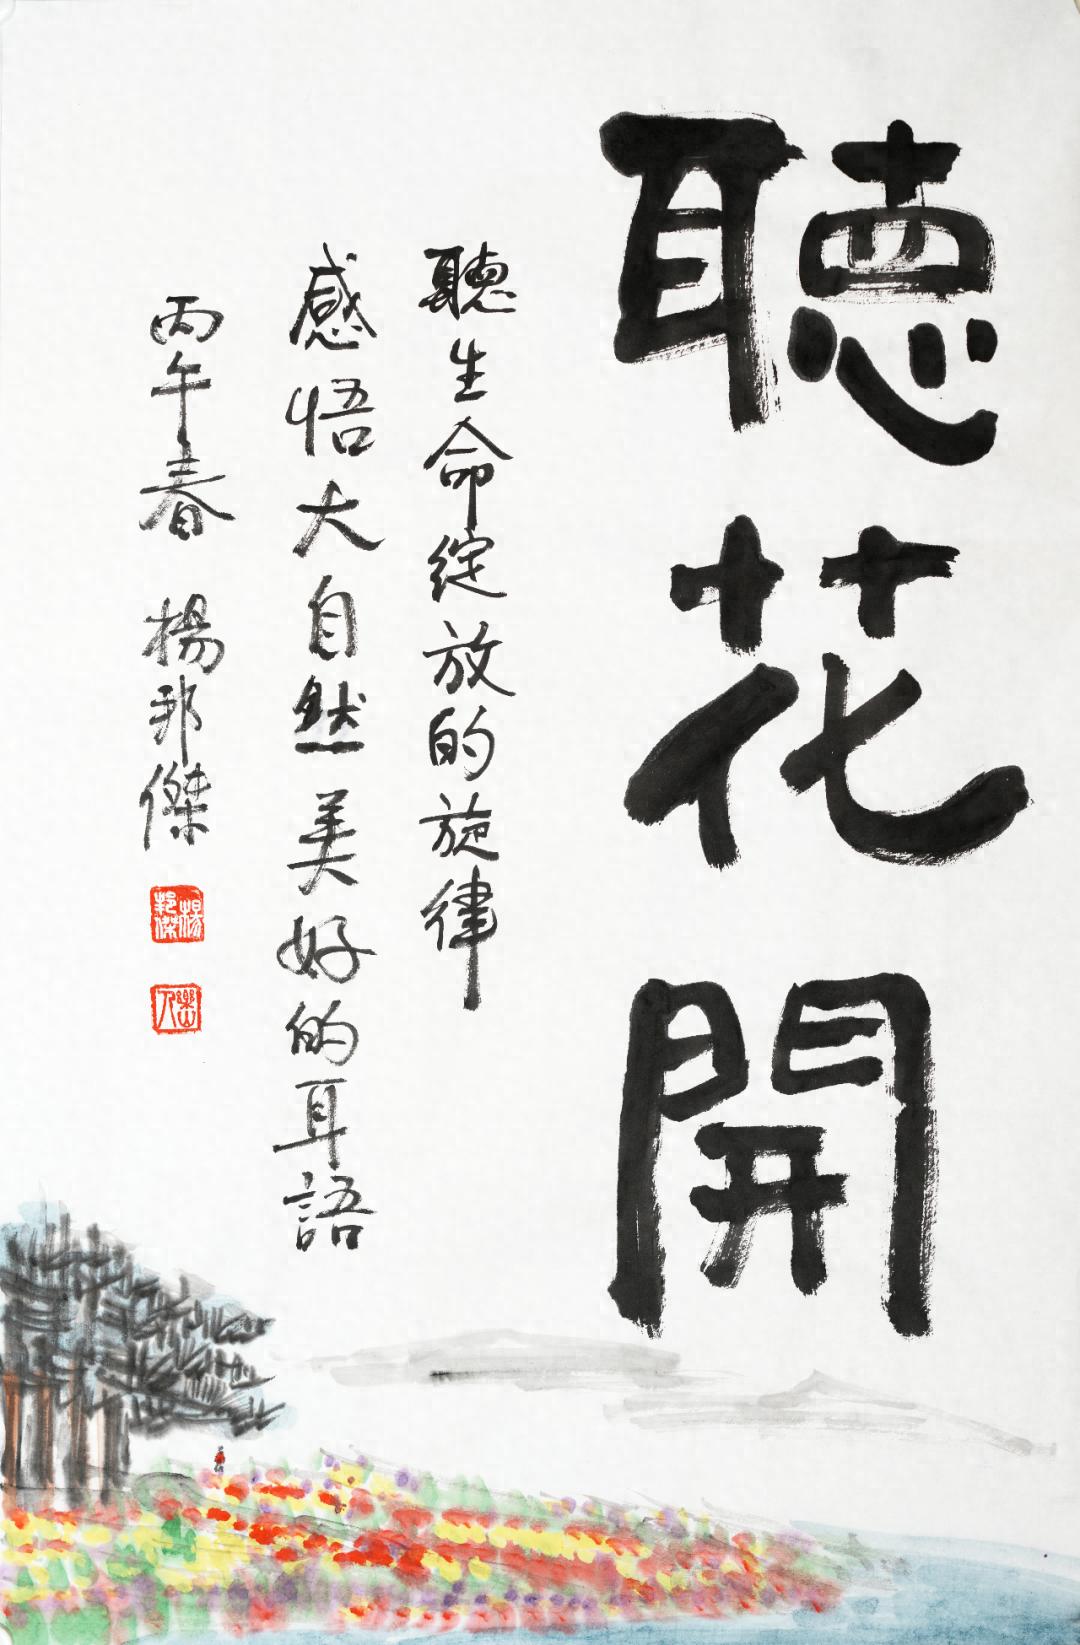 聽花開
聽生命綻放的旋律
感悟大自然美好的耳語
丙午春 楊邦傑
楊邦傑